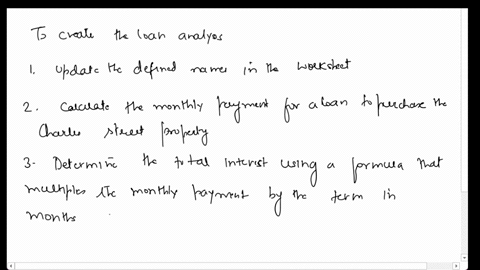 To create the loan analysis
1. Update the defined names in the worksheet
2. Calculate the monthly payment for a loan to purchase the
Charles street property
3- Determine the total interest using a formula that
multiples the monthly payment by the term in
months